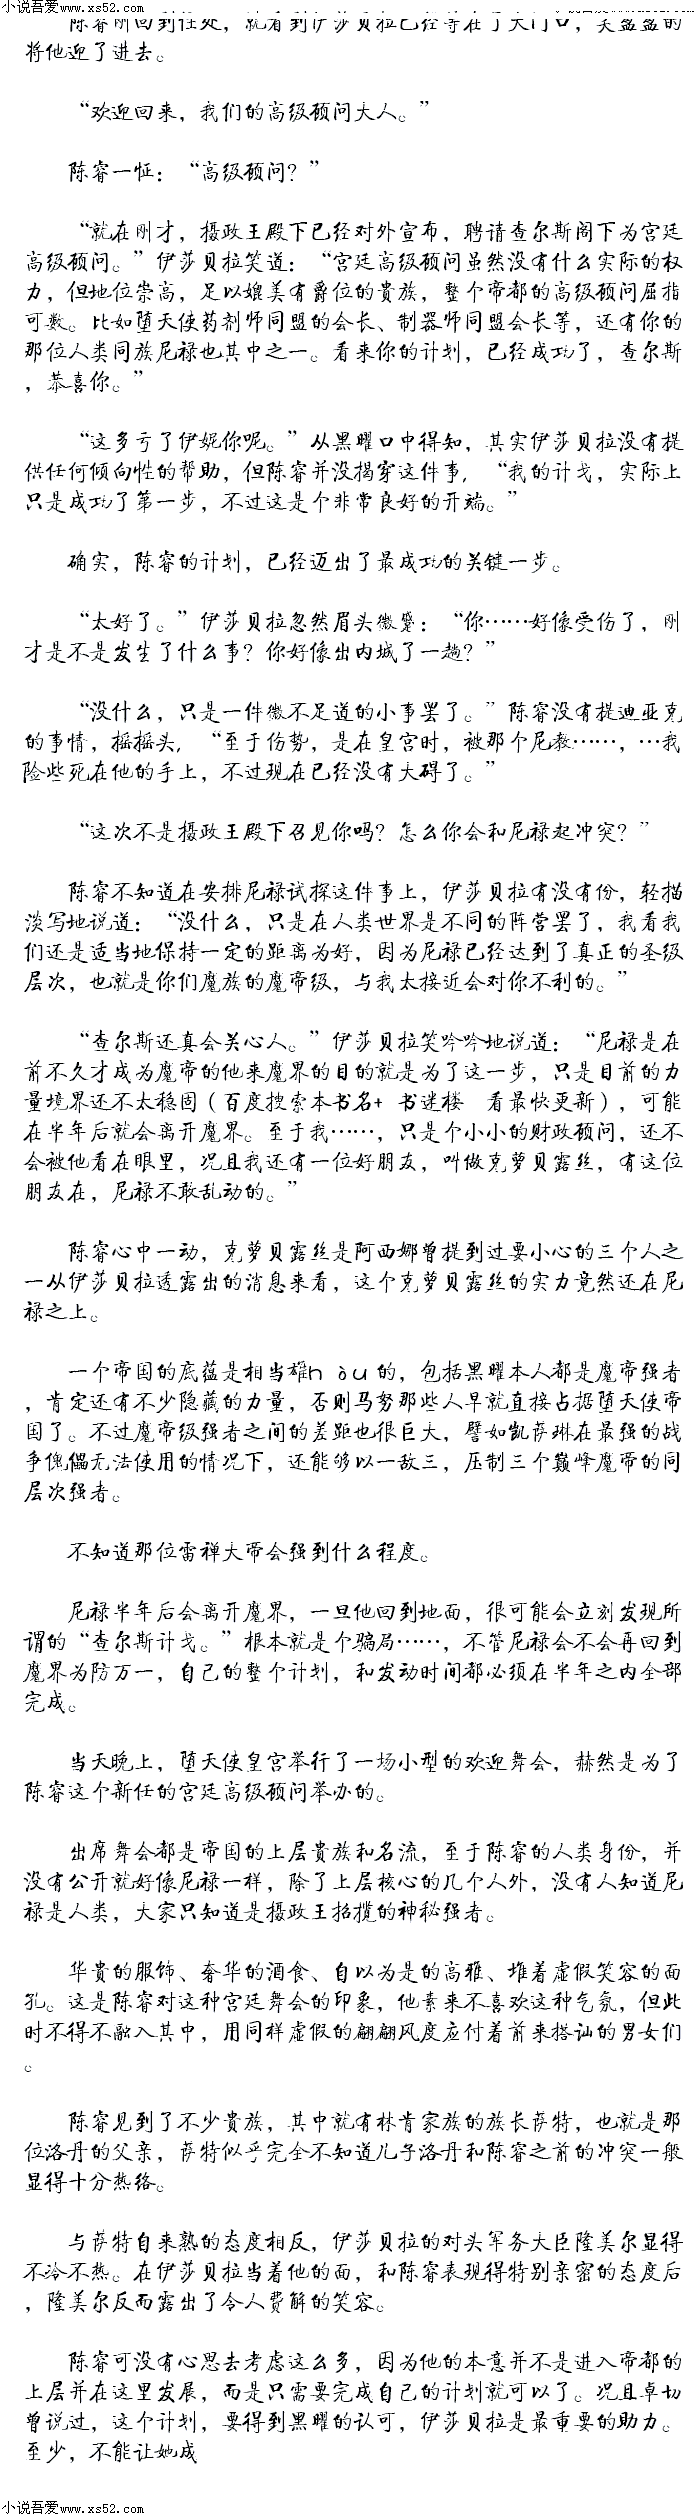 小说吾爱www.xs52.com
陈睿刚回到住处，就看到伊莎贝拉已经等在了大门口，笑盈盈的
将他迎了进去。
“欢迎回来，我们的高级顾问大人。”
陈睿一怔：“高级顾问？”
“就在刚才，摄政王殿下已经对外宣布，聘请查尔斯阁下为宫廷
高级顾问。”伊莎贝拉笑道：“宫廷高级顾问虽然没有什么实际的权
力，但地位崇高，足以媲美有爵位的贵族，整个帝都的高级顾问屈指
可数。比如堕天使药剂师同盟的会长、制器师同盟会长等，还有你的
那位人类同族尼禄也其中之一。看来你的计划，已经成功了，查尔斯
，恭喜你。”
“这多亏了伊妮你呢。”从黑曜口中得知，其实伊莎贝拉没有提
供任何倾向性的帮助，但陈睿并没揭穿这件事，“我的计戈，实际上
只是成功了第一步，不过这是个非常良好的开端。”
确实，陈睿的计划，已经迈出了最成功的关键一步。
“太好了。”伊莎贝拉忽然眉头微蹙：“你……好像受伤了，刚
才是不是发生了什么事？你好像出内城了一趟？”
“没什么，只是一件微不足道的小事罢了。”陈睿没有提迪亚克
的事情，摇摇头，“至于伤势，是在皇宫时，被那个尼教……，…我
险些死在他的手上，不过现在已经没有大碍了。”
“这次不是摄政王殿下召见你吗？怎么你会和尼禄起冲突？”
陈睿不知道在安排尼禄试探这件事上，伊莎贝拉有没有份，轻描
淡写地说道：“没什么，只是在人类世界是不同的阵营罢了，我看我
们还是适当地保持一定的距离为好，因为尼禄已经达到了真正的圣级
层次，也就是你们魔族的魔帝级，与我太接近会对你不利的。”
“查尔斯还真会关心人。”伊莎贝拉笑吟吟地说道：“尼禄是在
前不久才成为魔帝的他来魔界的目的就是为了这一步，只是目前的力
量境界还不太稳固（百度搜索本书名+ 书迷楼 看最快更新），可能
在半年后就会离开魔界。至于我……，只是个小小的财政顾问，还不
会被他看在眼里，况且我还有一位好朋友，叫做克萝贝露丝，有这位
朋友在，尼禄不敢乱动的。”
陈睿心中一动，克萝贝露丝是阿西娜曾提到过要小心的三个人之
一从伊莎贝拉透露出的消息来看，这个克萝贝露丝的实力竟然还在尼
禄之上。
一个帝国的底蕴是相当雄h òu 的，包括黑曜本人都是魔帝强者
，肯定还有不少隐藏的力量，否则马努那些人早就直接占据堕天使帝
国了。不过魔帝级强者之间的差距也很巨大，譬如凯萨琳在最强的战
争傀儡无法使用的情况下，还能够以一敌三，压制三个巅峰魔帝的同
层次强者。
不知道那位雷禅大帝会强到什么程度。
尼禄半年后会离开魔界，一旦他回到地面，很可能会立刻发现所
谓的“查尔斯计戈。”根本就是个骗局……，不管尼禄会不会再回到
魔界为防万一，自己的整个计划，和发动时间都必须在半年之内全部
完成。
当天晚上，堕天使皇宫举行了一场小型的欢迎舞会，赫然是为了
陈睿这个新任的宫廷高级顾问举办的。
出席舞会都是帝国的上层贵族和名流，至于陈睿的人类身份，并
没有公开就好像尼禄一样，除了上层核心的几个人外，没有人知道尼
禄是人类，大家只知道是摄政王招揽的神秘强者。
华贵的服饰、奢华的酒食、自以为是的高雅、堆着虚假笑容的面
孔。这是陈睿对这种宫廷舞会的印象，他素来不喜欢这种气氛，但此
时不得不融入其中，用同样虚假的翩翩风度应付着前来搭讪的男女们
。
陈睿见到了不少贵族，其中就有林肯家族的族长萨特，也就是那
位洛丹的父亲，萨特似乎完全不知道儿子洛丹和陈睿之前的冲突一般
显得十分热络。
与萨特自来熟的态度相反，伊莎贝拉的对头军务大臣隆美尔显得
不冷不热。在伊莎贝拉当着他的面，和陈睿表现得特别亲密的态度后
，隆美尔反而露出了令人费解的笑容。
陈睿可没有心思去考虑这么多，因为他的本意并不是进入帝都的
上层并在这里发展，而是只需要完成自己的计划就可以了。况且卓切
曾说过，这个计划，要得到黑曜的认可，伊莎贝拉是最重要的助力。
至少，不能让她成
小说吾爱www.xs52.com